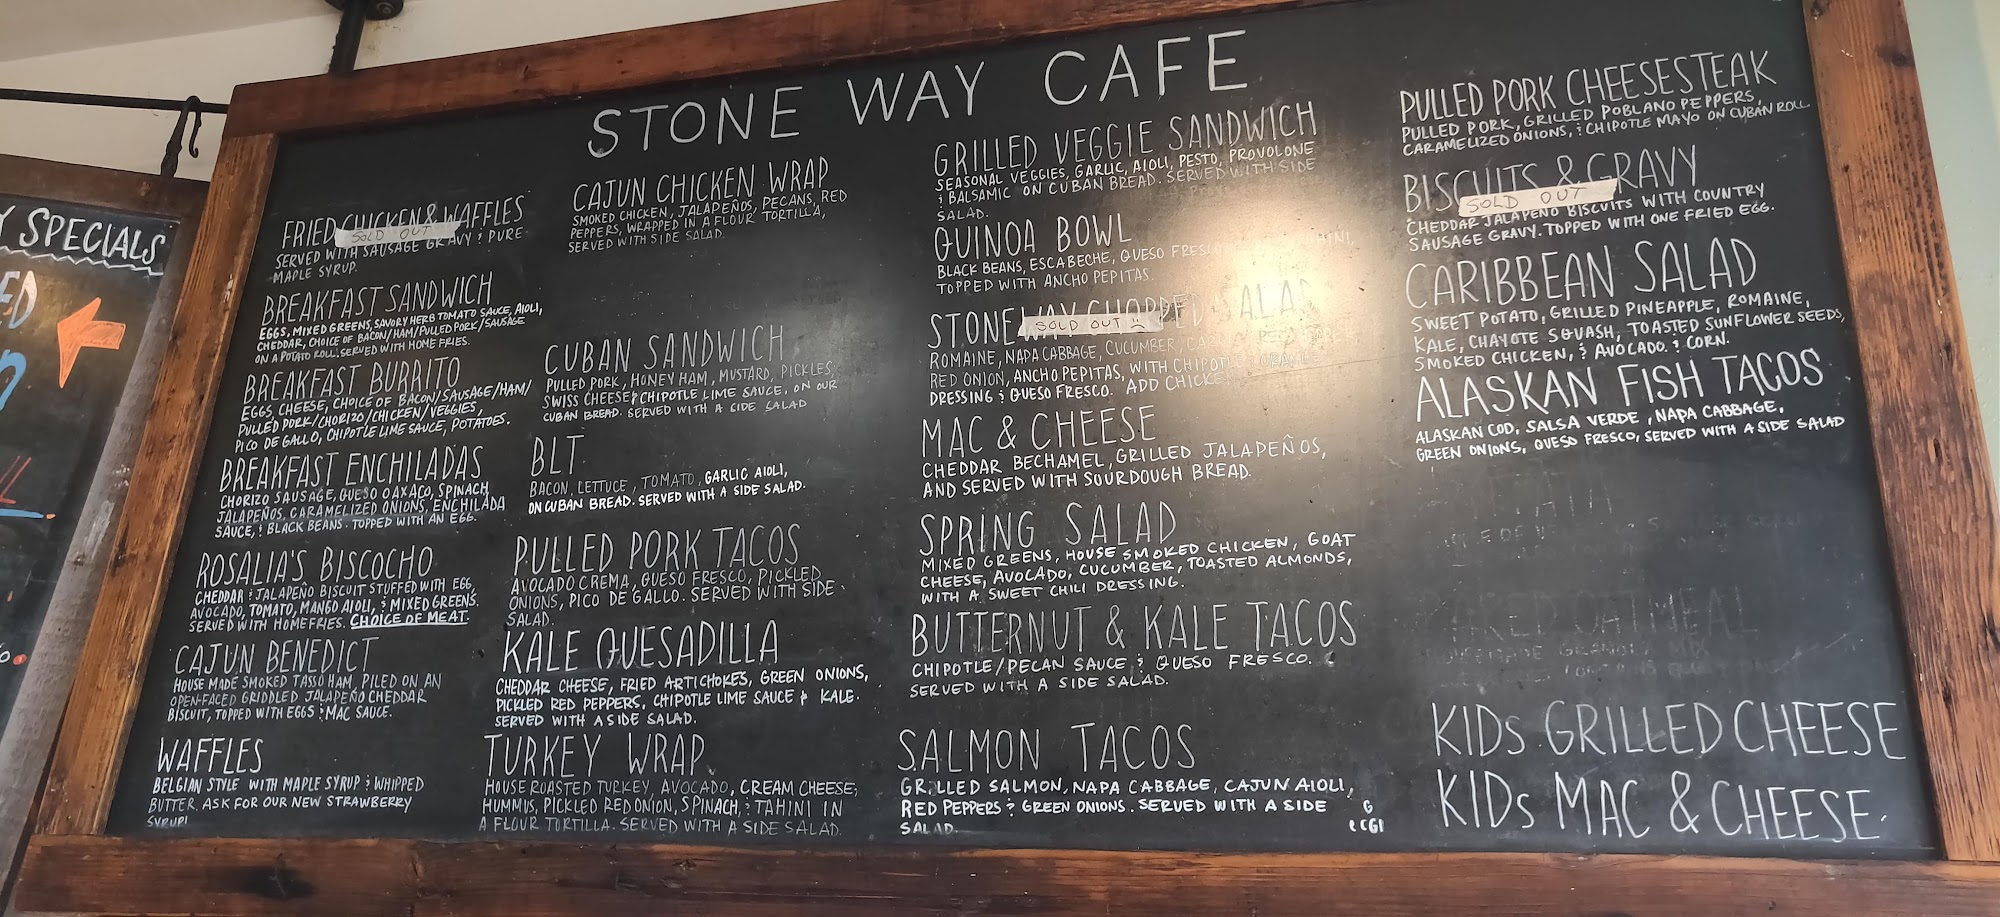 Y SPECIALS
STONE WAY CAFE
FRIED CHICKEN & WAFFLES
SOLD OUT
SERVED WITH SAUSAGE GRAVY & PURE
MAPLE SYRUP.
BREAKFAST SANDWICH
EGGS, MIXED GREENS, SAVORY HERB TOMATO SAUCE, AIOLI,
CHEDDAR, CHOICE OF BACON/HAM/PULLED PORK/SAUSAGE
ON A POTATO ROLL. SERVED WITH HOME FRIES.
BREAKFAST BURRITO
EGGS, CHEESE, CHOICE OF BACON/SAUSAGE/HAM/
PULLED PORK/CHORIZO/CHICKEN/VEGGIES,
PICO DE GALLO, CHIPOTLE LIME SAUCE, POTATOES.
BREAKFAST ENCHILADAS
CHORIZO SAUSAGE, QUESO OAXACO, SPINACH,
JALAPEÑOS, CARAMELIZED ONIONS, ENCHILADA
SAUCE, & BLACK BEANS. TOPPED WITH AN EGG.
ROSALIA'S BISCOCHO
CHEDDAR & JALAPEÑO BISCUIT STUFFED WITH EGG,
AVOCADO, TOMATO, MANGO AIOLI, & MIXED GREENS.
SERVED WITH HOMEFRIES. CHOICE OF MEAT.
CAJUN BENEDICT
HOUSE MADE SMOKED TASSO HAM, PILED ON AN
OPEN-FACED GRIDDLED JALAPEÑO CHEDDAR
BISCUIT, TOPPED WITH EGGS & MAC SAUCE.
WAFFLES
BELGIAN STYLE WITH MAPLE SYRUP & WHIPPED
BUTTER. ASK FOR OUR NEW STRAWBERRY
SYRUP!
CAJUN CHICKEN WRAP
SMOKED CHICKEN, JALAPEÑOS, PECANS, RED
PEPPERS, WRAPPED IN A FLOUR TORTILLA,
SERVED WITH SIDE SALAD.
CUBAN SANDWICH
PULLED PORK, HONEY HAM, MUSTARD, PICKLES,
SWISS CHEESE & CHIPOTLE LIME SAUCE. ON OUR
CUBAN BREAD. SERVED WITH A SIDE SALAD
BLT
BACON, LETTUCE, TOMATO, GARLIC AIOLI,
ON CUBAN BREAD. SERVED WITH A SIDE SALAD.
PULLED PORK TACOS
AVOCADO CREMA, QUESO FRESCO, PICKLED
ONIONS, PICO DE GALLO. SERVED WITH SIDE
SALAD.
KALE QUESADILLA
CHEDDAR CHEESE, FRIED ARTICHOKES, GREEN ONIONS,
PICKLED RED PEPPERS, CHIPOTLE LIME SAUCE & KALE.
SERVED WITH A SIDE SALAD.
TURKEY WRAP
HOUSE ROASTED TURKEY, AVOCADO, CREAM CHEESE,
HUMMUS, PICKLED RED ONION, SPINACH, & TAHINI IN
A FLOUR TORTILLA. SERVED WITH A SIDE SALAD.
GRILLED VEGGIE SANDWICH
SEASONAL VEGGIES, GARLIC, AIOLI, PESTO, PROVOLONE
& BALSAMIC ON CUBAN BREAD. SERVED WITH SIDE
SALAD.
QUINOA BOWL
BLACK BEANS, ESCABECHE, QUESO FRESCO
TOPPED WITH ANCHO PEPITAS.
STONEWAY CHOPPED SALAD
SOLD OUT
ROMAINE, NAPA CABBAGE, CUCUMBER,
RED ONION, ANCHO PEPITAS, WITH CHIPOTLE ORANGE
DRESSING & QUESO FRESCO. ADD CHICKEN
MAC & CHEESE
CHEDDAR BECHAMEL, GRILLED JALAPEÑOS,
AND SERVED WITH SOURDOUGH BREAD.
SPRING SALAD
MIXED GREENS, HOUSE SMOKED CHICKEN, GOAT
CHEESE, AVOCADO, CUCUMBER, TOASTED ALMONDS,
WITH A SWEET CHILI DRESSING.
BUTTERNUT & KALE TACOS
CHIPOTLE/PECAN SAUCE & QUESO FRESCO.
SERVED WITH A SIDE SALAD.
SALMON TACOS
GRILLED SALMON, NAPA CABBAGE, CAJUN AIOLI,
RED PEPPERS & GREEN ONIONS. SERVED WITH A SIDE
SALAD.
PULLED PORK CHEESESTEAK
PULLED PORK, GRILLED POBLANO PEPPERS,
CARAMELIZED ONIONS, & CHIPOTLE MAYO ON CUBAN ROLL
BISCUITS & GRAVY
SOLD OUT
CHEDDAR JALAPEÑO BISCUITS WITH COUNTRY
SAUSAGE GRAVY. TOPPED WITH ONE FRIED EGG.
CARIBBEAN SALAD
SWEET POTATO, GRILLED PINEAPPLE, ROMAINE,
KALE, CHAYOTE SQUASH, TOASTED SUNFLOWER SEEDS,
SMOKED CHICKEN, & AVOCADO. & CORN.
ALASKAN FISH TACOS
ALASKAN COD, SALSA VERDE, NAPA CABBAGE,
GREEN ONIONS, QUESO FRESCO, SERVED WITH A SIDE SALAD
KIDs GRILLED CHEESE
KIDs MAC & CHEESE.